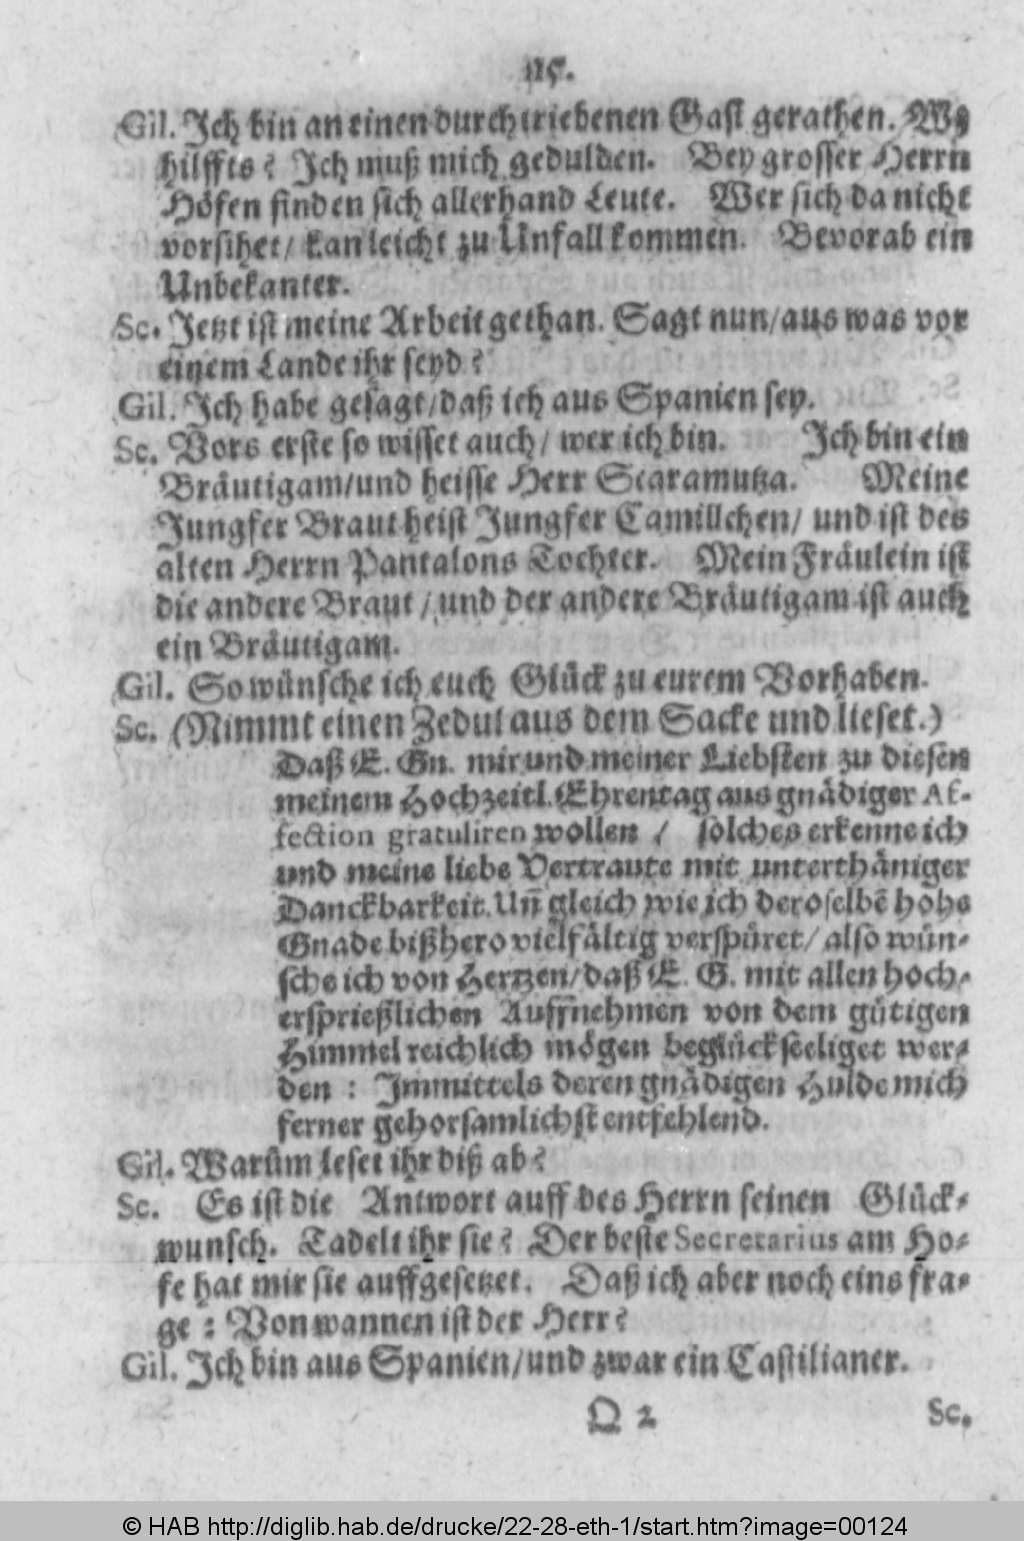 115.
Gil. Ich bin an einen durchtriebenen Gast gerathen. Was
hilffts? Ich muß mich gedulden. Bey grosser Herrn
Höfen finden sich allerhand Leute. Wer sich da nicht
vorsihet/ kan leicht zu Unfall kommen. Bevorab ein
Unbekanter.
Sc. Jetzt ist meine Arbeit gethan. Sagt nun/ aus was vor
einem Lande ihr seyd?
Gil. Ich habe gesagt/ daß ich aus Spanien sey.
Sc. Vors erste so wisset auch/ wer ich bin. Ich bin ein
Bräutigam/ und heisse Herr Scaramutza. Meine
Jungfer Braut heist Jungfer Camillchen/ und ist des
alten Herrn Pantalons Tochter. Mein Fräulein ist
die andere Braut/ und der andere Bräutigam ist auch
ein Bräutigam.
Gil. So wünsche ich euch Glück zu eurem Vorhaben.
Sc. (Nimmt einen Zedul aus dem Sacke und lieset.)
Daß E. Gn. mir und meiner Liebsten zu diesen
meinem Hochzeitl. Ehrentag aus gnädiger Af-
fection gratuliren wollen / solches erkenne ich
und meine liebe Vertraute mit unterthäniger
Danckbarkeit. Uñ gleich wie ich deroselbẽ hohe
Gnade bißhero vielfältig verspüret/ also wün-
sche ich von Hertzen/ daß E. G. mit allen hoch-
ersprießlichen Auffnehmen von dem gütigen
Himmel reichlich mögen beglückseeliget wer-
den : Immittels deren gnädigen Hulde mich
ferner gehorsamlichst entfehlend.
Gil. Warüm leset ihr diß ab?
Sc. Es ist die Antwort auff des Herrn seinen Glück-
wunsch. Tadelt ihr sie? Der beste Secretarius am Ho-
fe hat mir sie auffgesetzet. Daß ich aber noch eins fra-
ge : Von wannen ist der Herr?
Gil. Ich bin aus Spanien/ und zwar ein Castilianer.
Q 2 Sc.
© HAB http://diglib.hab.de/drucke/22-28-eth-1/start.htm?image=00124